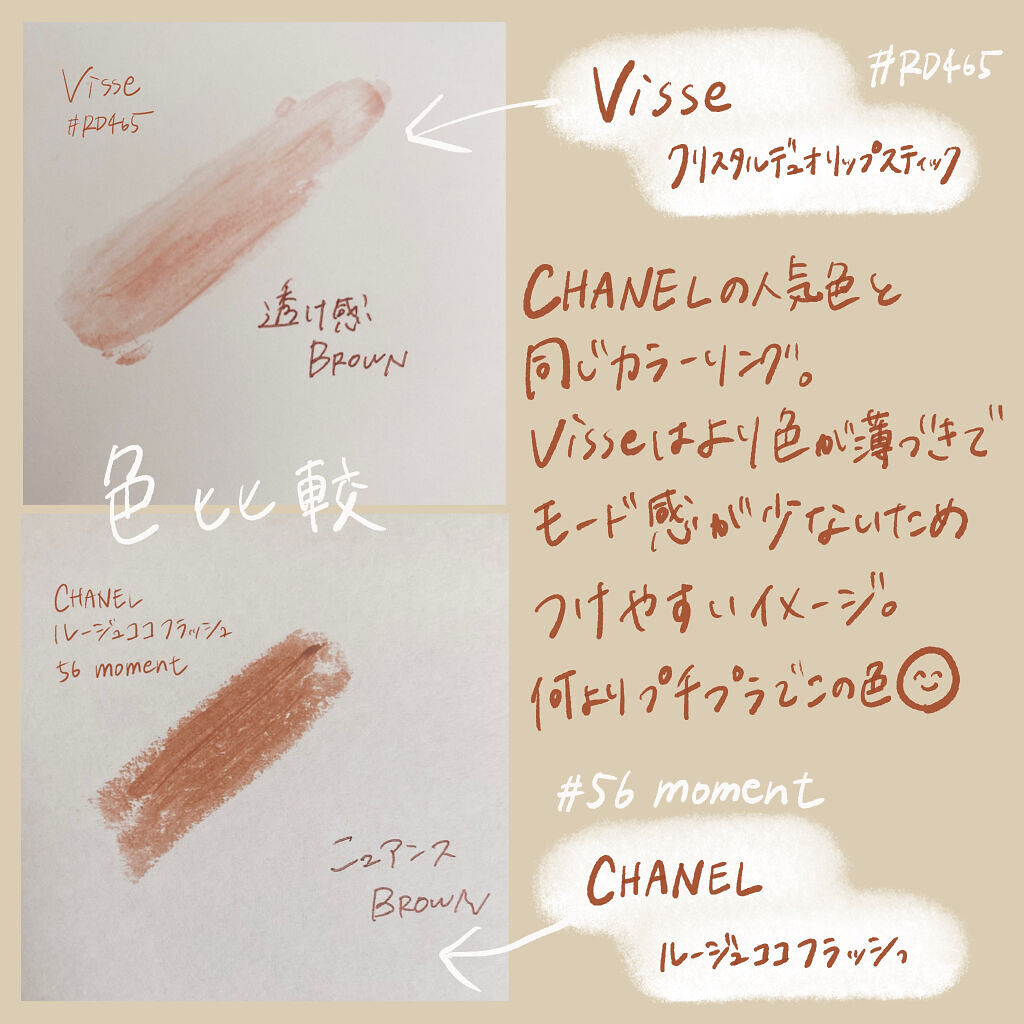 Visse
#RD465
透け感
BROWN
色比較
CHANEL
ルージュココフラッシュ
56 moment
ニュアンス
BROWN
#RD465
Visse
クリスタルデュオリップスティック
CHANELの人気色と
同じカラーリング。
Visseはより色が薄づきで
モード感が少ないため
つけやすいイメージ。
何よりプチプラでこの色
#56 moment
CHANEL
ルージュココフラッシュ